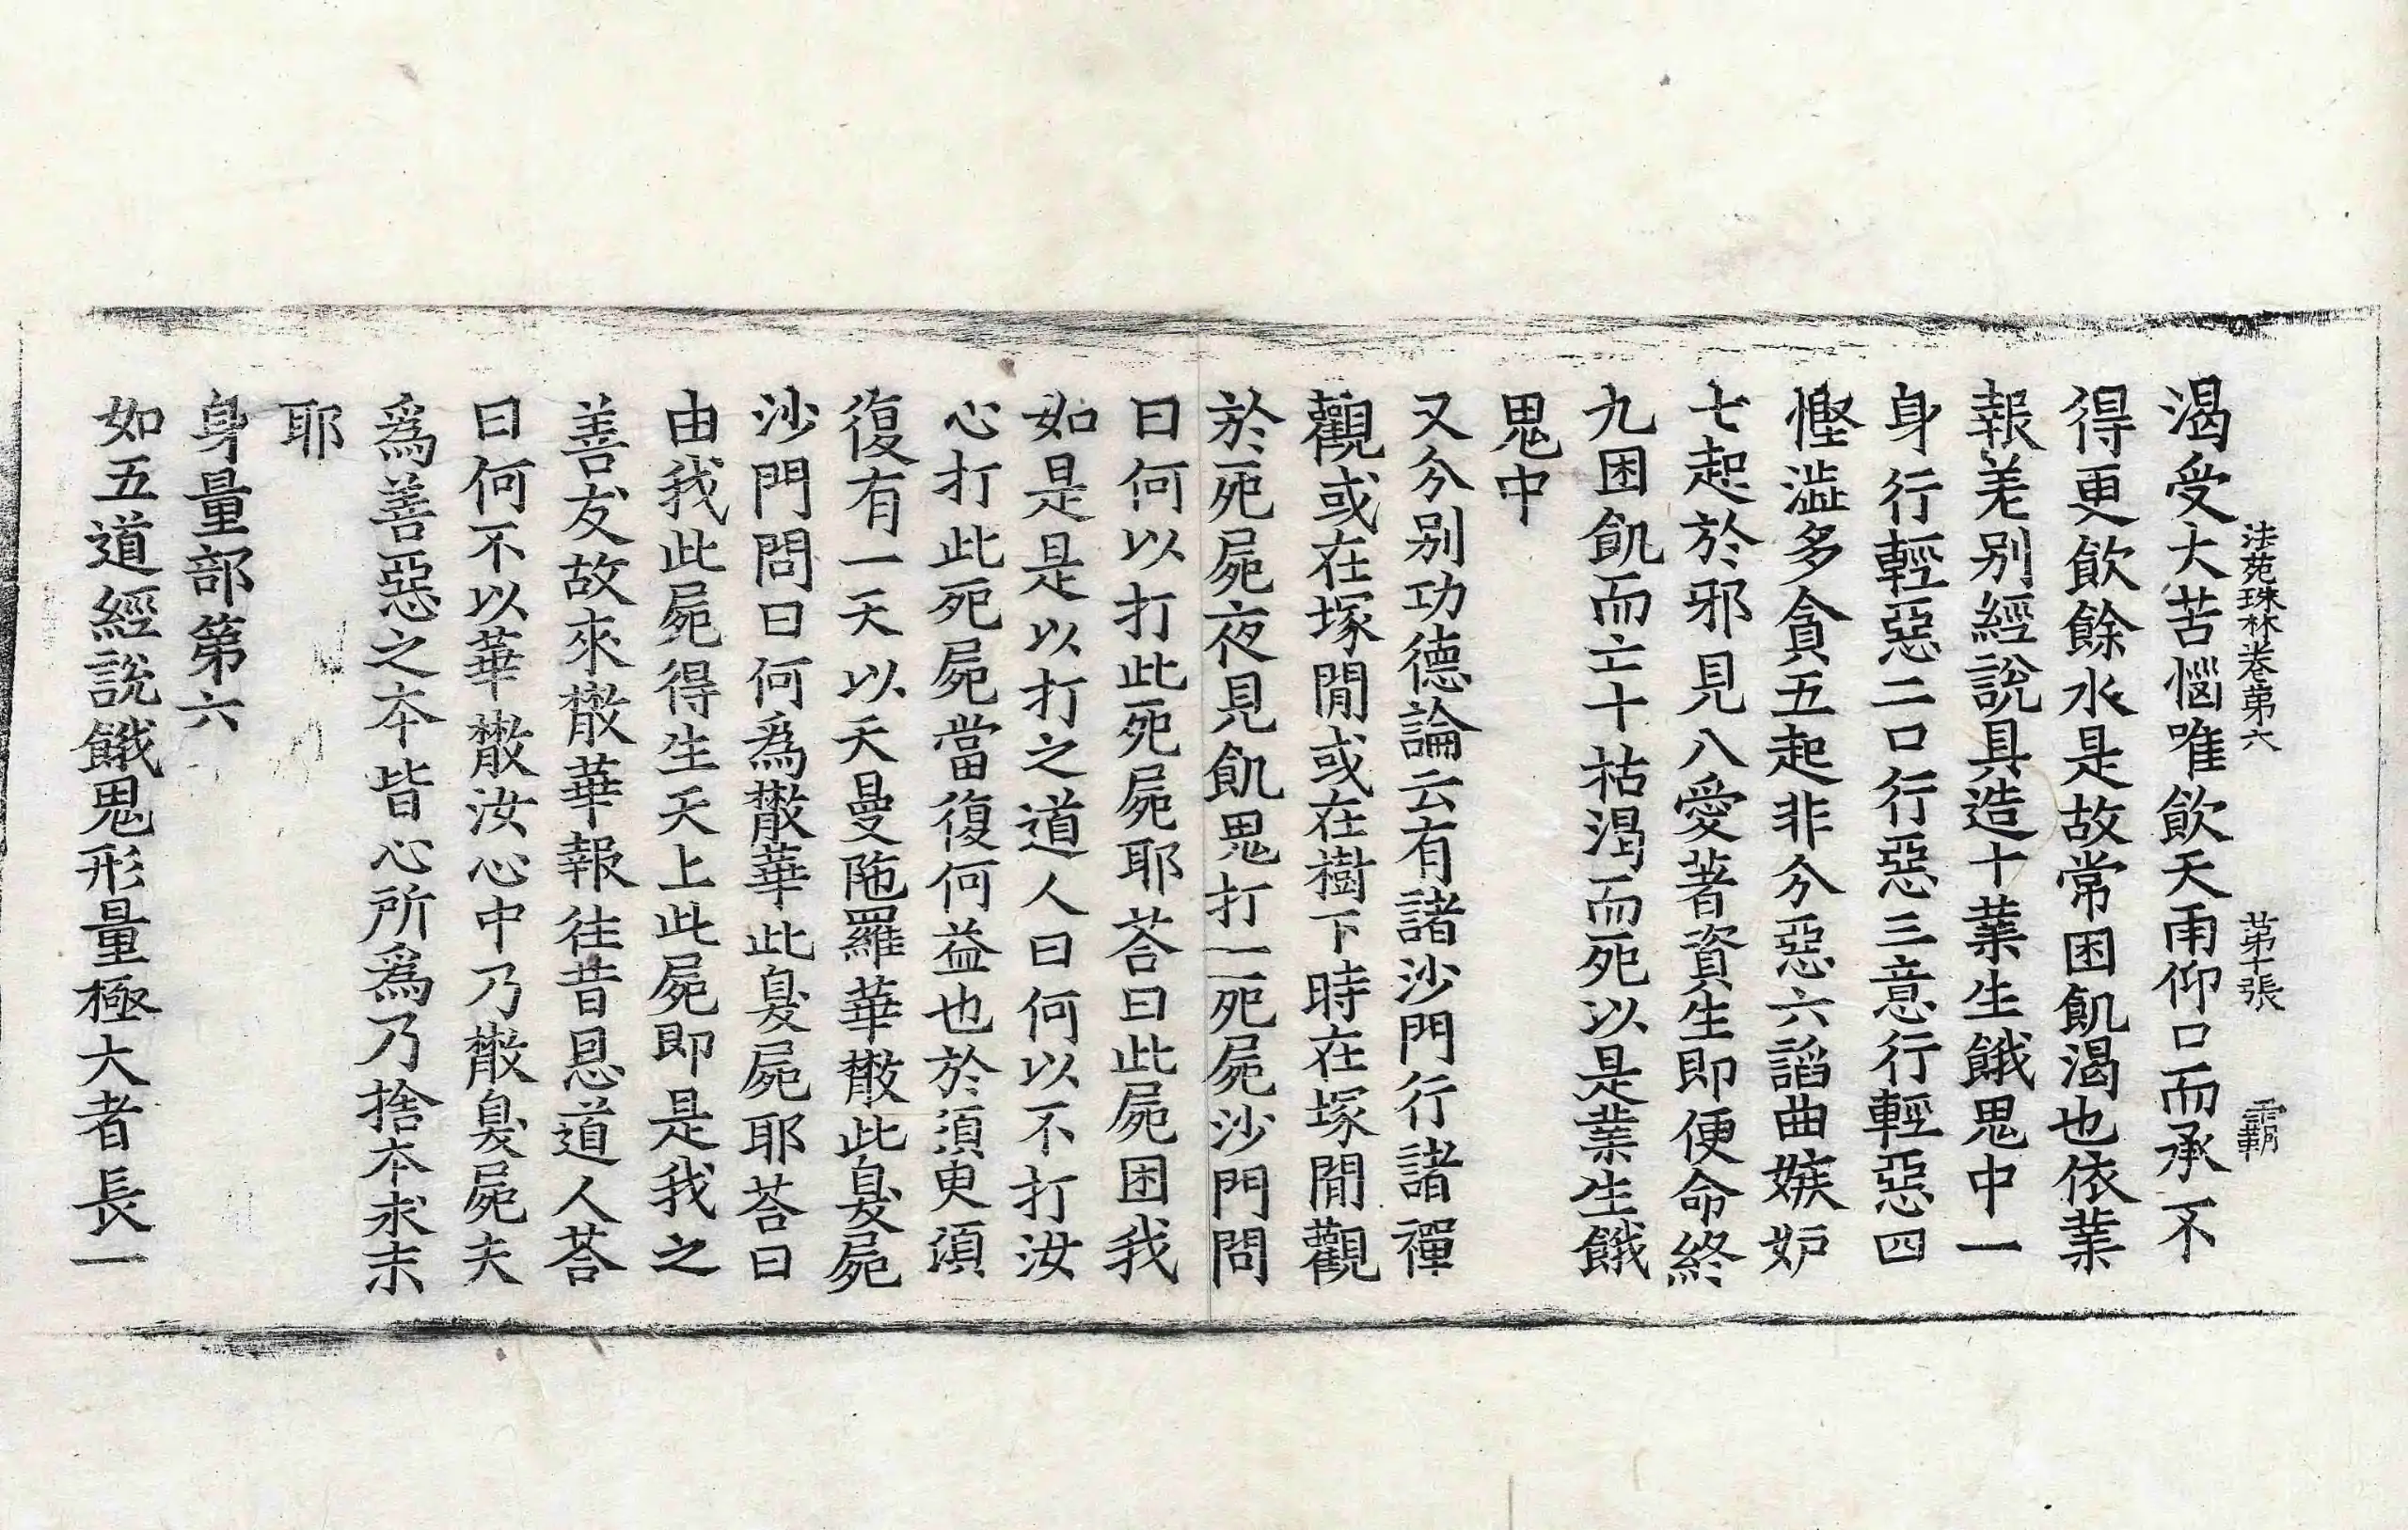 法苑珠林卷第六　第十張　霸
渴受大苦惱唯飲天雨仰口而承不
得更飲餘水是故常困飢渴也依業
報差別經說具造十業生餓鬼中一
身行輕惡二口行惡三意行輕惡四
慳澁多貪五起非分惡六諂曲嫉妒
七起於邪見八愛著資生即便命終
九困飢而亡十枯渴而死以是業生餓
鬼中
又分別功德論云有諸沙門行諸禪
觀或在塚閒或在樹下時在塚閒觀
於死屍夜見飢鬼打一死屍沙門問
曰何以打此死屍耶荅曰此屍困我
如是是以打之道人曰何以不打汝
心打此死屍當復何益也於須臾須
復有一天以天曼陁羅華散此臭屍
沙門問曰何爲散華此臭屍耶荅曰
由我此屍得生天上此屍即是我之
善友故來散華報往昔恩道人荅
曰何不以華散汝心中乃散臭屍夫
爲善惡之本皆心所爲乃捨本求末
耶
身量部第六
如五道經說餓鬼形量極大者長一